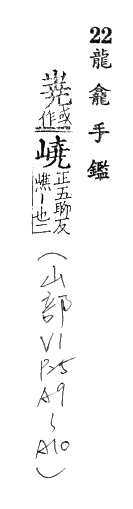 22 龍龕手鑑
嶤或作嶢正五聊反嶕丨也二(山部 V1 P25 A9 ~ A10)